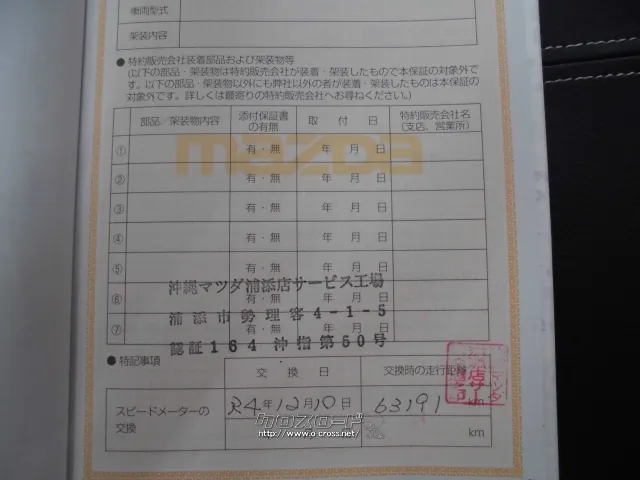 車両型式
架装内容
● 特約販売会社装着部品および架装物等
(以下の部品・架装物は特約販売会社が装着・架装したもので本保証の対象外で
す。以下の部品・架装物以外にも弊社以外の者が装着・架装したものは本保証の
対象外です。詳しくは最寄りの特約販売会社へお尋ねください。)
部品／架装物内容 添付保証書の有無 取付日 特約販売会社名(支店、営業所)
mazda
① 有・無 年 月 日
② 有・無 年 月 日
③ 有・無 年 月 日
④ 有・無 年 月 日
⑤ 有・無 年 月 日
沖縄マツダ浦添店サービス工場
⑥ 有・無 年 月 日
浦添市勢理客4-1-5
⑦ 有・無 年 月 日
認証164 沖指第50号
● 特記事項
交換日 交換時の走行距離
スピードメーターの交換 R4年12月10日 63191 km
クロスロード
http://www.o-cross.net/
km